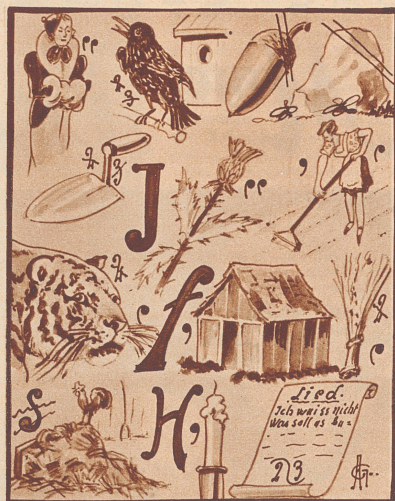 J
f
S
H
Lied.
Ich weiss nicht
Was soll es be=
2 3